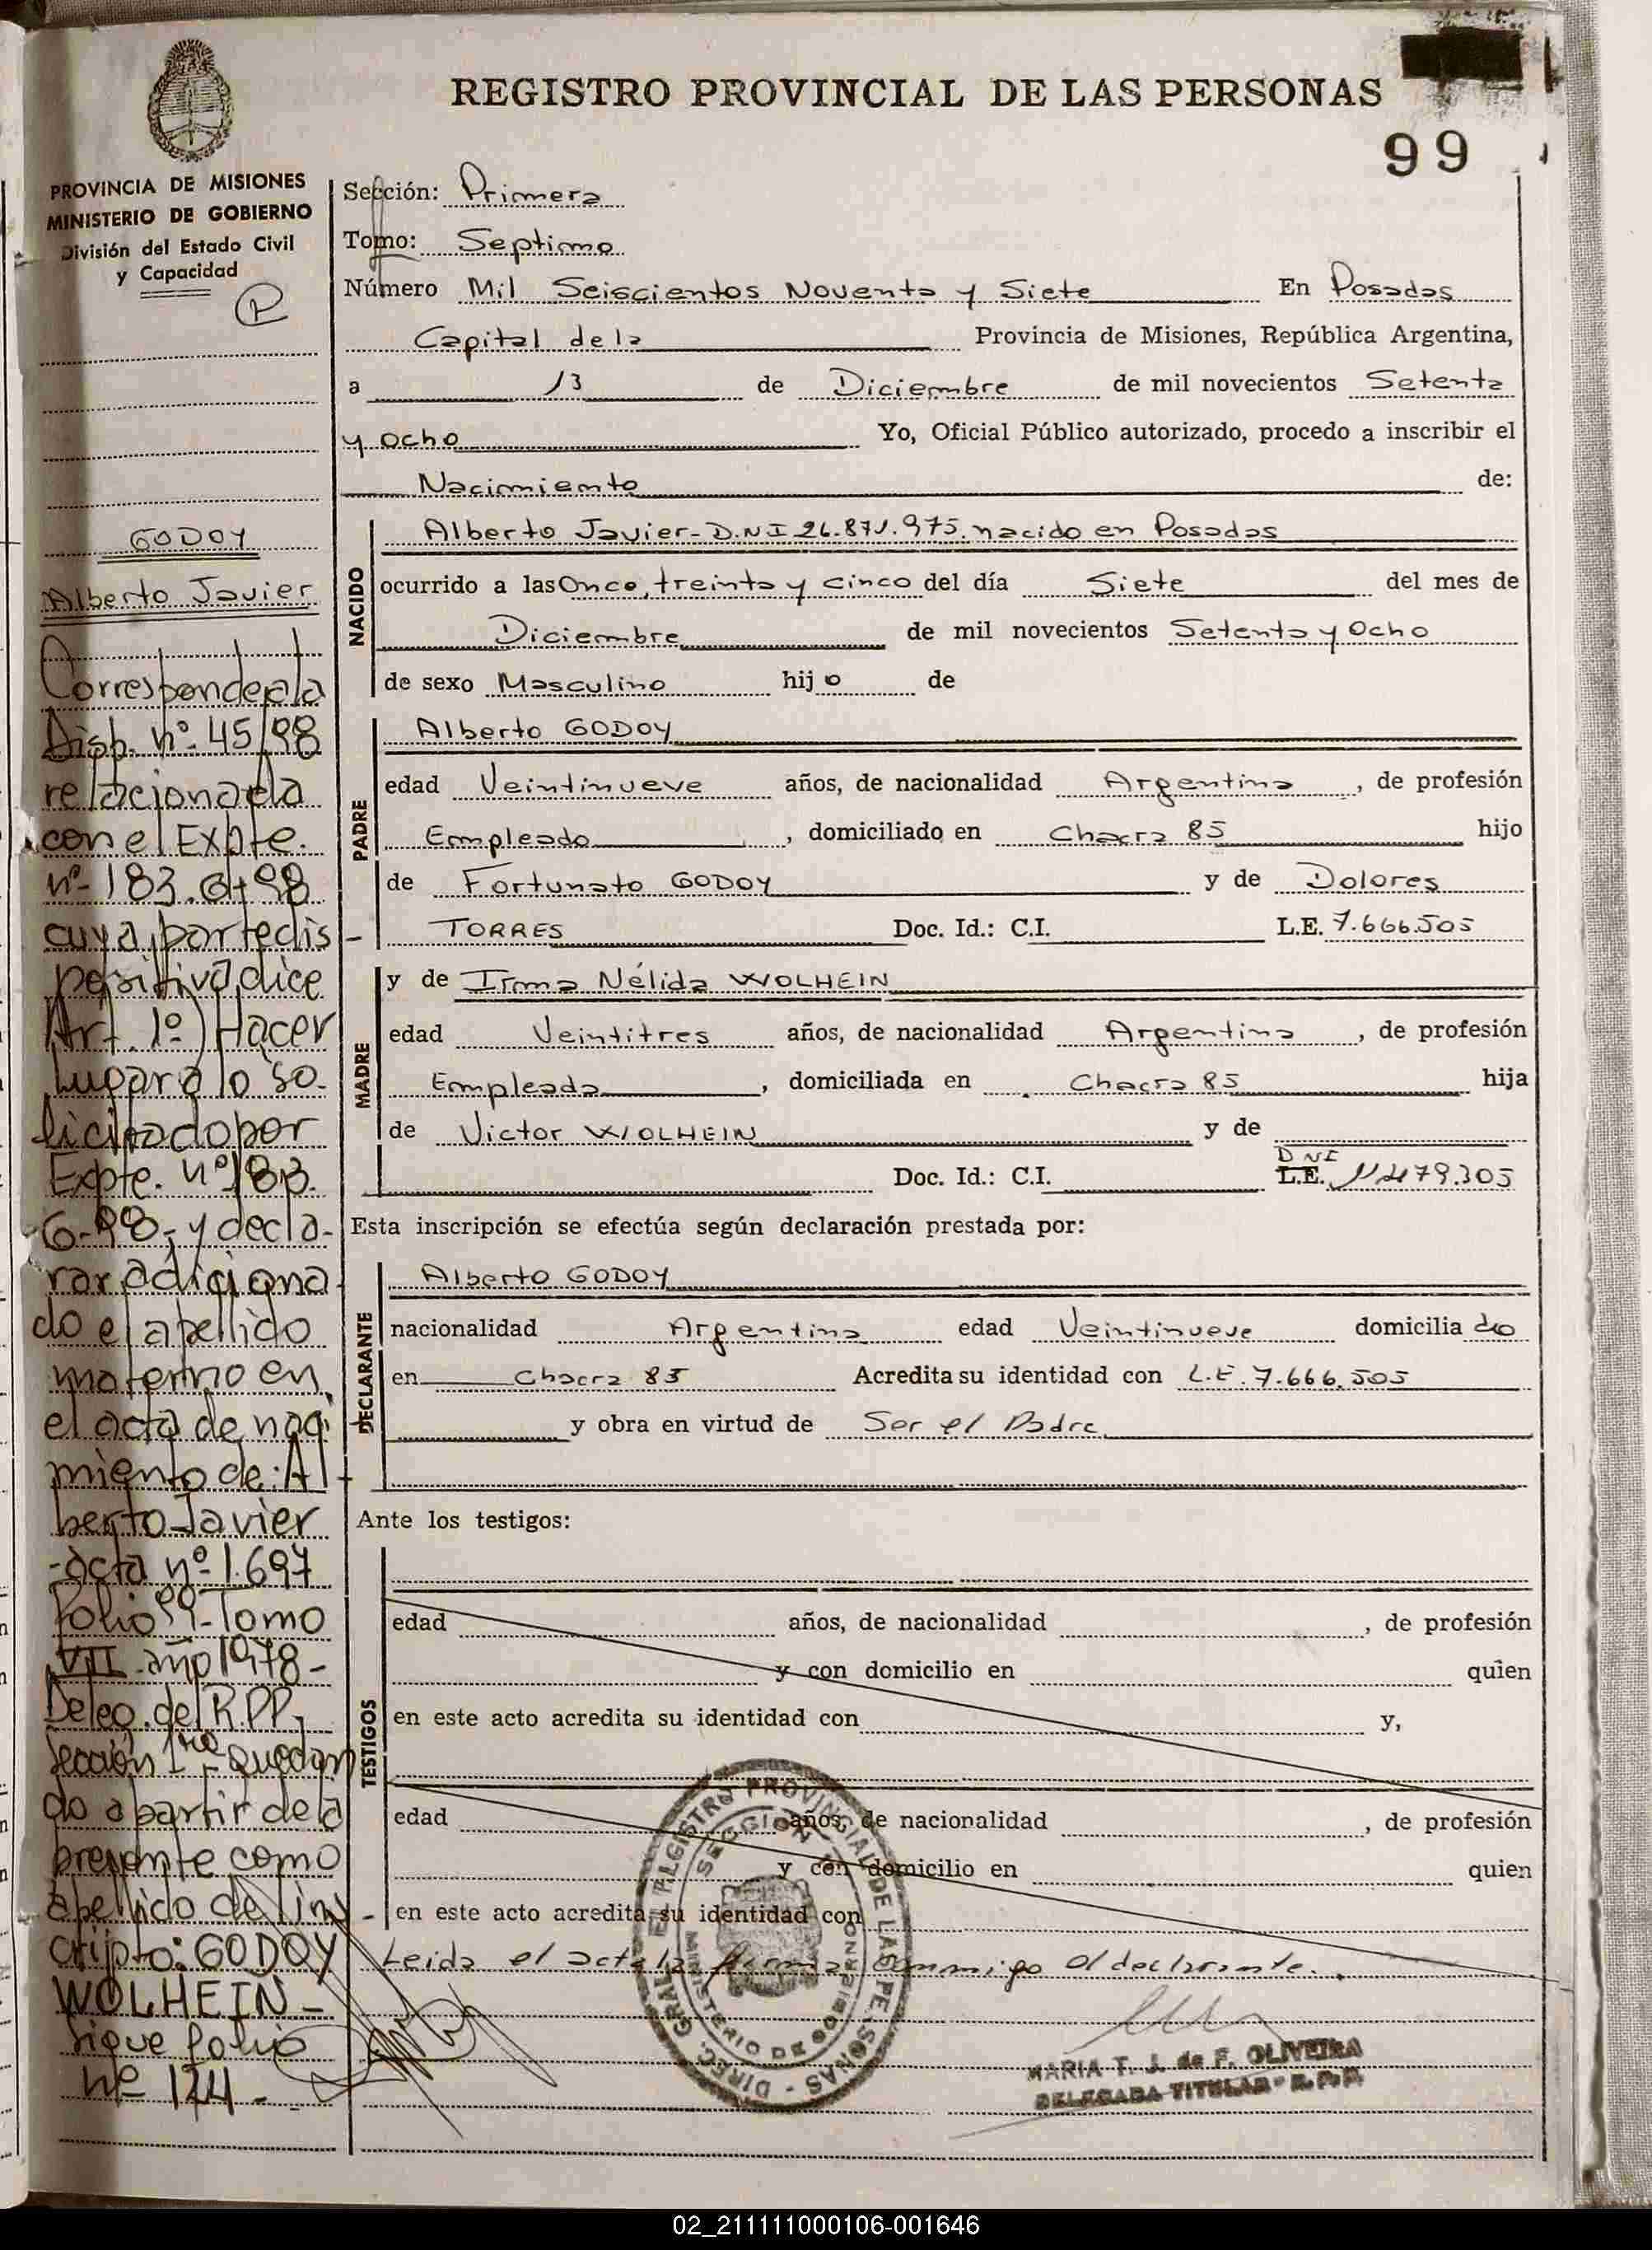 REGISTRO PROVINCIAL DE LAS PERSONAS
99
PROVINCIA DE MISIONES
MINISTERIO DE GOBIERNO
División del Estado Civil
y Capacidad
R
GODOY
Alberto Javier
Corresponde a la
Disp. nº 45/98
relacionada
con el Expte.
nº 183.G+98
cuya parte dis
positiva, dice
Art. 1º) Hacer
lugar a lo so-
licitado por
Expte. nº 183.
-G-98-, y decla-
rar adiciona-
do el apellido
materno en
el acta de naci
miento de: Al
berto Javier
-acta nº 1.697
Folio 99-Tomo
VII-año 1978-
Deleg. del R.P.P.
Sección 1ra - quedan
do a partir de la
presente como
apellido del ins
cripto: GODOY
WOLHEIN -
sigue folio
nº 124 -
Sección: Primera
Tomo: Septimo
Número Mil Seiscientos Noventa y Siete En Posadas
Capital de la Provincia de Misiones, República Argentina,
a 13 de Diciembre de mil novecientos Setenta
y ocho Yo, Oficial Público autorizado, procedo a inscribir el
Nacimiento de:
NACIDO
Alberto Javier - D.N.I 26.871.975. nacido en Posadas
ocurrido a las Once, treinta y cinco del día Siete del mes de
Diciembre de mil novecientos Setenta y Ocho
de sexo Masculino hijo de
PADRE
Alberto GODOY
edad Veintinueve años, de nacionalidad Argentina, de profesión
Empleado, domiciliado en Chacra 85 hijo
de Fortunato GODOY y de Dolores
TORRES Doc. Id.: C.I. L.E. 7.666.505
MADRE
y de Irma Nélida WOLHEIN
edad Veintitres años, de nacionalidad Argentina, de profesión
Empleada, domiciliada en Chacra 85 hija
de Victor WOLHEIN y de
DNI
Doc. Id.: C.I. L.E. 11479.305
Esta inscripción se efectúa según declaración prestada por:
DECLARANTE
Alberto GODOY
nacionalidad Argentina edad Veintinueve domiciliado
en Chacra 85 Acredita su identidad con L.E. 7.666.505
y obra en virtud de Ser el Padre
Ante los testigos:
TESTIGOS
edad años, de nacionalidad , de profesión
y con domicilio en quien
en este acto acredita su identidad con y,
edad años, de nacionalidad , de profesión
y con domicilio en quien
en este acto acredita su identidad con
Leida el acta la firma conmigo el declarante.
DIREC. GRAL. REGISTRO PROVINCIAL DE LAS PERSONAS
SECCION
MINISTERIO DE GOBIERNO
MARIA T. J. de F. OLIVEIRA
DELEGADA TITULAR - R.P.P.
02_211111000106-001646